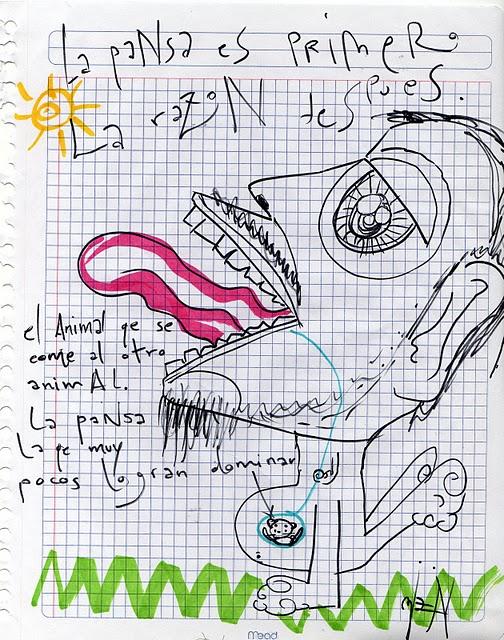 La paNsa es primero.
La razóN despues.
el Animal qe se
come al otro
animAL.
La panSa
La qe muy
pocos logran dominar
Mead